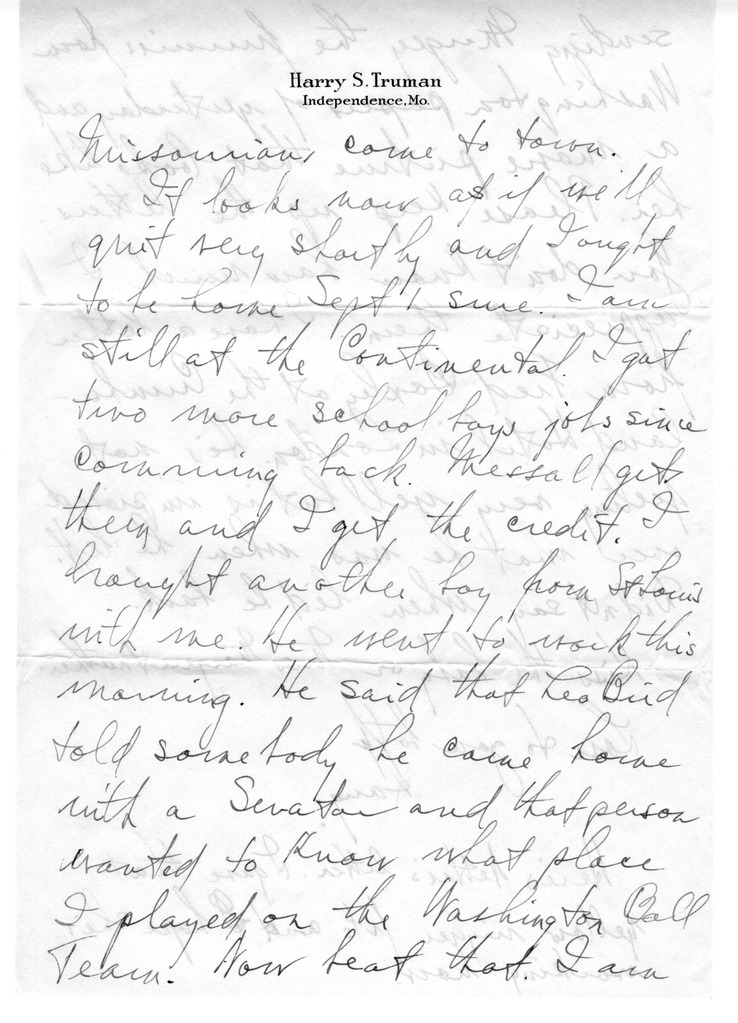 Harry S. Truman
Independence, Mo.
Missourians come to town.
It looks now as if we'll
quit very shortly and I ought
to be home Sept 1 sure. I am
still at the Continental. I got
two more school boys jobs since
comming back. Messall gets
them and I get the credit. I
brought another boy from St Louis
with me. He went to work this
morning. He said that Leo Bird
told somebody he came home
with a Senator and that person
wanted to know what place
I played on the Washington Ball
Team. Now beat that. I am